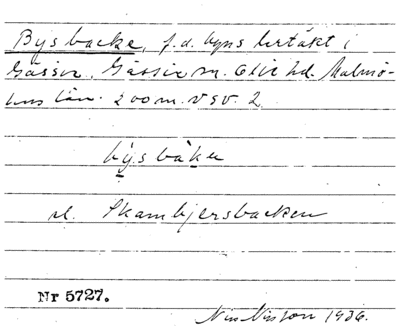 Bysbacke, f.d. byns lertäkt i
Gässie, Gässie sn. Oxie hd. Malmö-
hus län. 200 m. VSV. 2
býsbàka
el. Skambjersbacken
Nr 5727.
Nils Nilsson 1936.